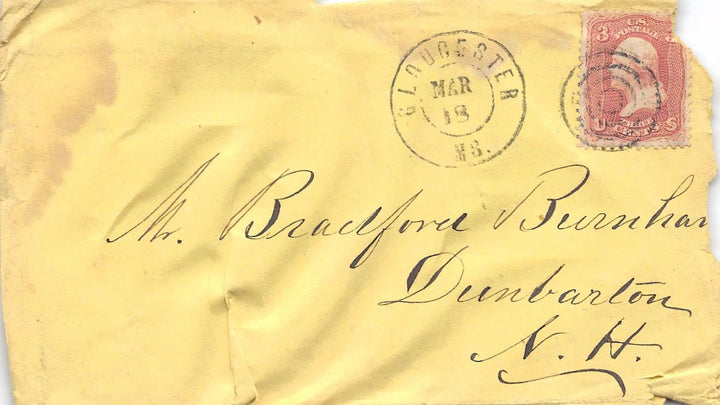 GLOUCESTER
MAR
18
MS.
3
U.S.
POSTAGE
CENTS
Mr. Bradford Burnham
Dunbarton
N. H.